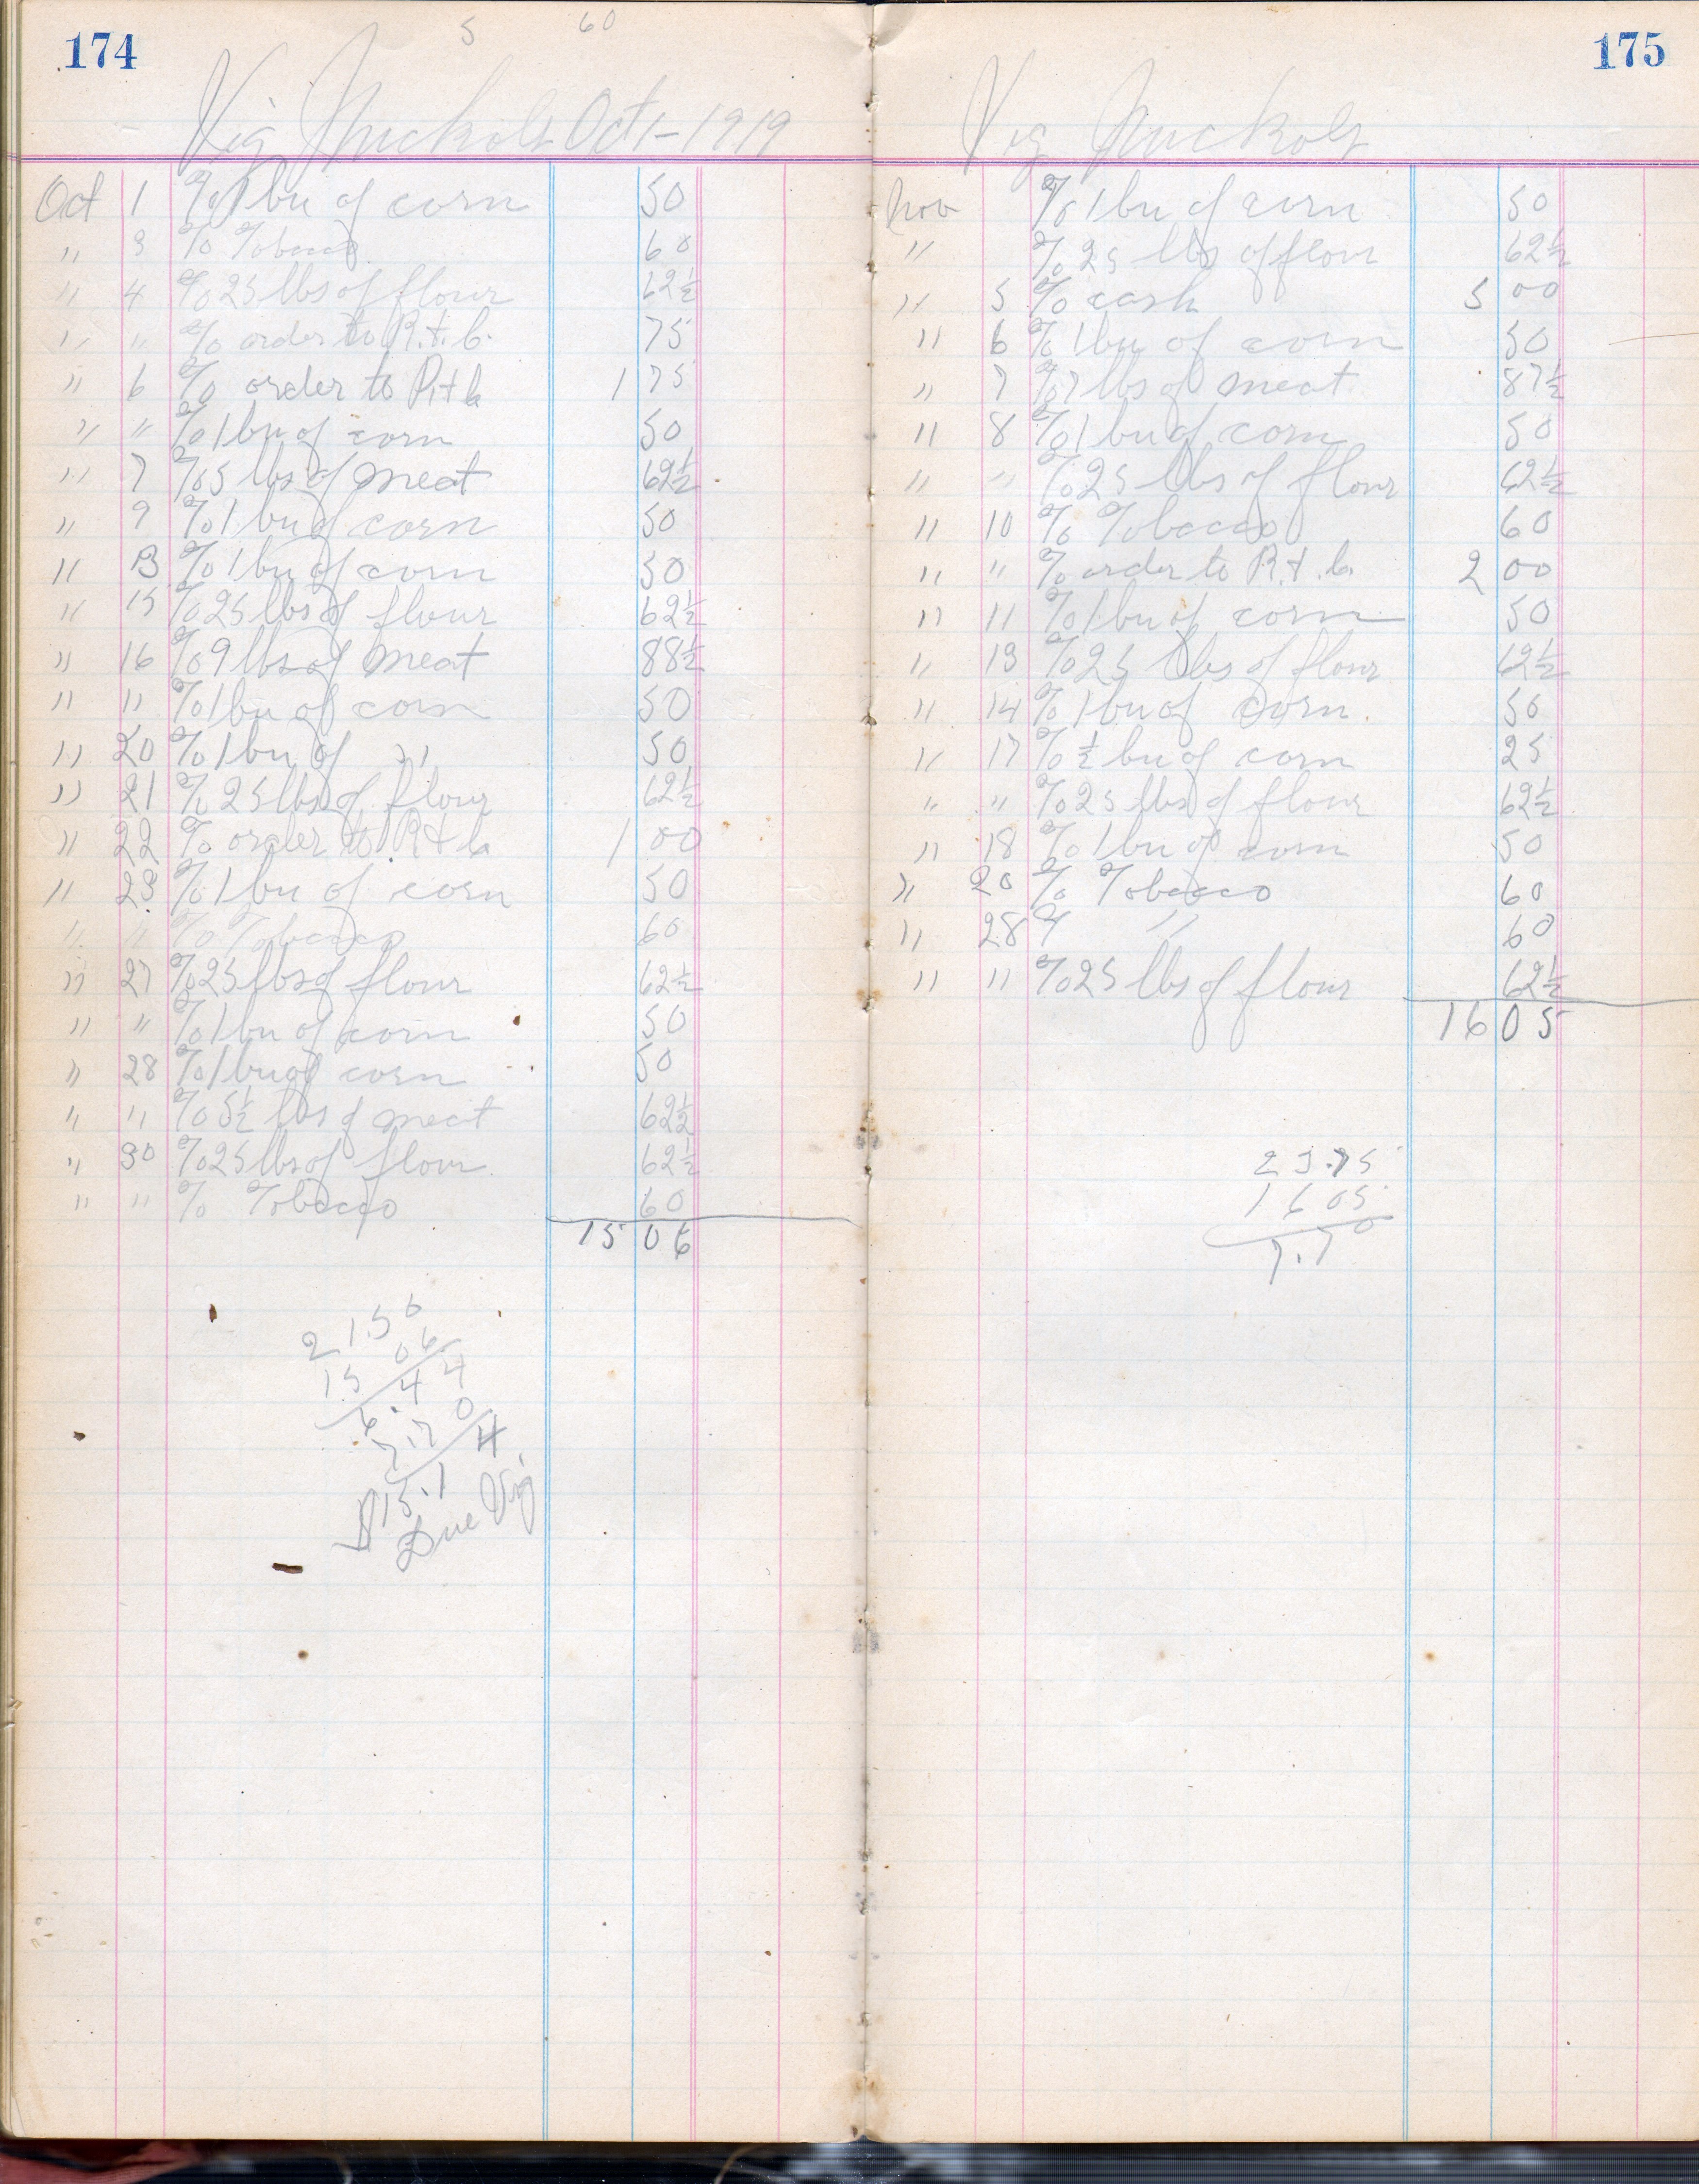 174
5 60
Vig Nuckols Oct 1-1919
Oct 1 % 1 bu of corn 50
" 3 % Tobacco 60
" 4 % 25 lbs of flour 62½
" " % order to R. + b. 75
" 6 % order to R + b 1 75
" " % 1 bu of corn 50
" 7 % 5 lbs of meat 62½
" 9 % 1 bu of corn 50
" 13 % 1 bu of corn 50
" 15 % 25 lbs of flour 62½
" 16 % 9 lbs of meat 88½
" " % 1 bu of corn 50
" 20 % 1 bu of " 50
" 21 % 25 lbs of flour 62½
" 22 % order to R + b 1 00
" 23 % 1 bu of corn 50
" " % Tobacco 60
" 27 % 25 lbs of flour 62½
" " % 1 bu of corn 50
" 28 % 1 bu of corn 50
" " % 5½ lbs of meat 62½
" 30 % 25 lbs of flour 62½
" " % Tobacco 60
15 06
21.50
15 06
6.44
7.70
$15.14
Due Vig
175
Vig Nuckols
Nov % 1 bu of corn 50
" % 25 lbs of flour 62½
" 5 % cash 5 00
" 6 % 1 bu of corn 50
" 7 % 7 lbs of meat 87½
" 8 % 1 bu of corn 50
" " % 25 lbs of flour 62½
" 10 % Tobacco 60
" " % order to R. + b. 2 00
" 11 % 1 bu of corn 50
" 13 % 25 lbs of flour 62½
" 14 % 1 bu of corn. 50
" 17 % ½ bu of corn 25
" " % 25 lbs of flour 62½
" 18 % 1 bu of corn 50
" 20 % Tobacco 60
" 28 % " 60
" " % 25 lbs of flour 62½
16 05
23.75
16 05
7.70